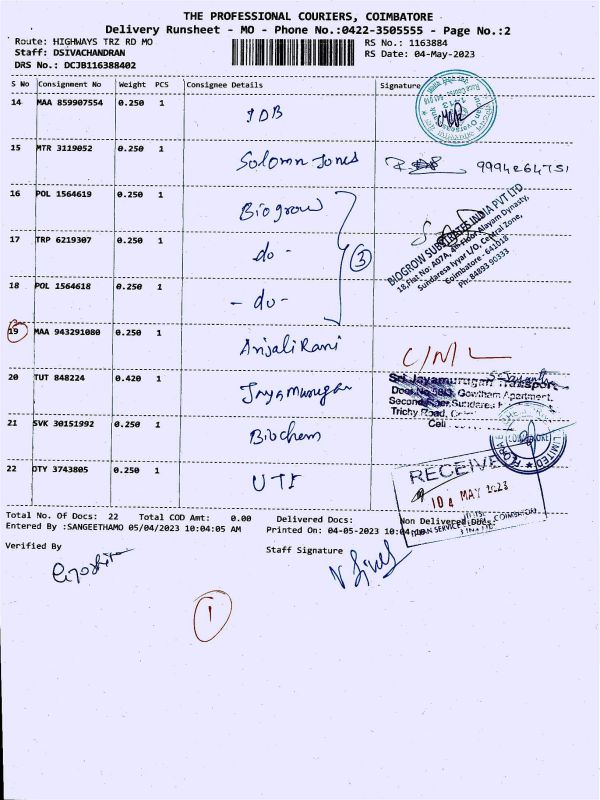 THE PROFESSIONAL COURIERS, COIMBATORE
Delivery Runsheet - MO - Phone No.:0422-3505555 - Page No.:2
Route: HIGHWAYS TRZ RD MO
RS No.: 1163884
Staff: DSIVACHANDRAN
RS Date: 04-May-2023
DRS No.: DCJB116388402
S No Consignment No Weight PCS Consignee Details Signature
14 MAA 859907554 0.250 1 IOB
15 MTR 3119052 0.250 1 Solomn Jones 9994264751
16 POL 1564619 0.250 1 Biogrow
BIOGROW SUBSTRATES INDIA PVT LTD
18, Flat No: A07A, 4th Floor Alayam Dynasty,
Sundaresa Iyyar L/O, Central Zone,
Coimbatore - 641018
Ph: 84893 90333
17 TRP 6219307 0.250 1 do -
3
18 POL 1564618 0.250 1 - do -
19 MAA 943291080 0.250 1 Anjali Rani C/M L
20 TUT 848224 0.420 1 Jayamurugan
Sri Jayamurugan Transport
Gowtham Apartment,
Second Floor, Sundaresa
Trichy Road,
Cell
21 SVK 30151992 0.250 1 Biochem
22 OTY 3743805 0.250 1 UTI
RECEIVED
04 MAY 2023
Total No. Of Docs: 22 Total COD Amt: 0.00 Delivered Docs: Non Delivered Docs:
Entered By :SANGEETHAMO 05/04/2023 10:04:05 AM Printed On: 04-05-2023 10:04
Verified By
Staff Signature
1